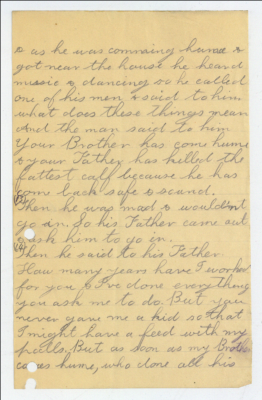 & as he was comming hume &
got near the house he heard
music & dancing so he called
one of his men & said to him
what does these things mean
And the man said to him
Your Brother has come hume
& your Father has killed the
fattest calf because he has
come back safe & sound.
Then he was mad & wouldn't
go in. So his Father came out
& ask him to go in.
Then he said to his Father
How many years have I worked
for you & I've done everything
you ask me to do. But you
never gave me a kid so that
I might have a feed with my
pells. But as soon as my Brother
comes hume, who done all his